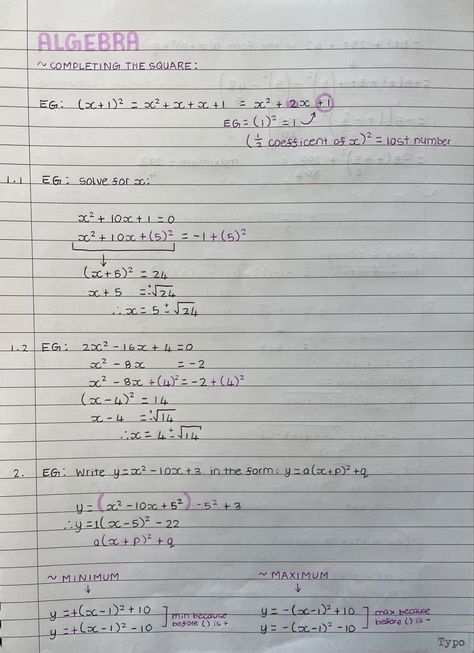 ALGEBRA
~ COMPLETING THE SQUARE:
EG: (x+1)² = x² + x + x + 1 = x² + 2x + 1
EG = (1)² = 1
(½ coefficent of x)² = last number
1.1 EG: solve for x:
x² + 10x + 1 = 0
x² + 10x + (5)² = -1 + (5)²
↓
(x+5)² = 24
x + 5 = ±√24
∴ x = 5 ± √24
1.2 EG: 2x² - 16x + 4 = 0
x² - 8x = -2
x² - 8x + (4)² = -2 + (4)²
(x - 4)² = 14
x - 4 = ±√14
∴ x = 4 ± √14
2. EG: Write y = x² - 10x + 3 in the form: y = a(x+p)² + q
y = (x² - 10x + 5²) - 5² + 3
∴ y = 1(x - 5)² - 22
a(x + p)² + q
~ MINIMUM ~ MAXIMUM
↓ ↓
y = +(x-1)² + 10 ] min because y = -(x-1)² + 10 ] max because
y = +(x-1)² - 10 before () is + y = -(x-1)² - 10 before () is -
Typo